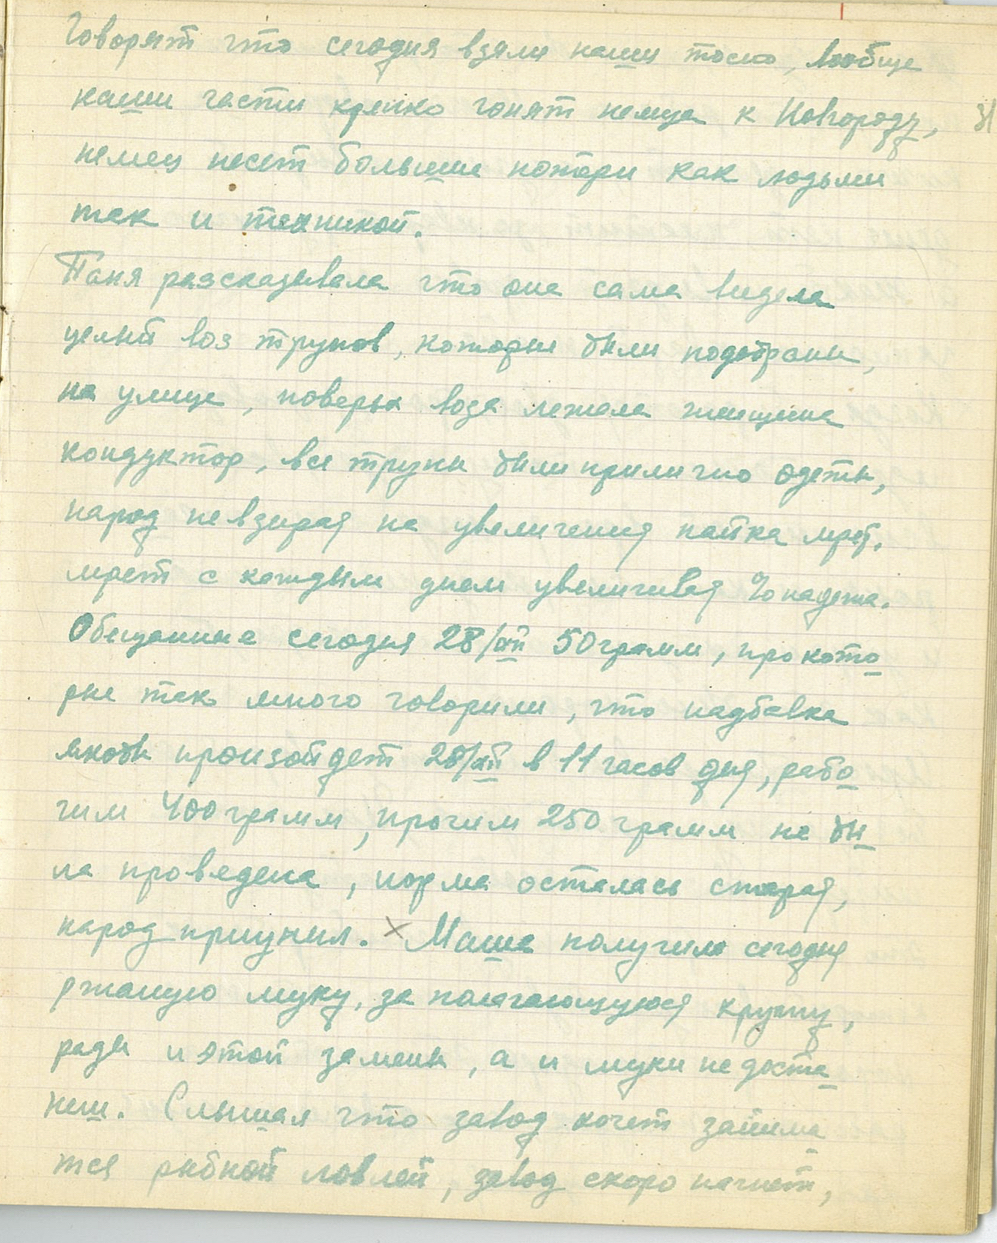 Говорят что сегодня взяли наши тосно, вообще
наши части крепко гонят немца к Новгороду,
немец несет большие потери как людьми
так и техникой.
Таня разсказывала что она сама видела
целый воз трупов, которые были подобраны,
на улице, поверх воза лежала женщина
кондуктор, все трупы были прилично одеты,
народ невзирая на увеличения пайка мрет.
мрет с каждым днем увеличивая % падежа.
Обещанные сегодня 28/XII 50 грамм, про кото
рые так много говорили, что надбавка
якобы произойдет 28/XII в 11 часов дня, рабо
чим 400 грамм, прочим 250 грамм не бы
ла проведена, норма осталась старая,
народ приуныл. × Маша получила сегодня
ржаную муку, за полагающуюся крупу,
рады и этой замены, а и муки не доста
неш. Слышал что завод хочет занима
тся рыбной ловлей, завод скоро начнет,